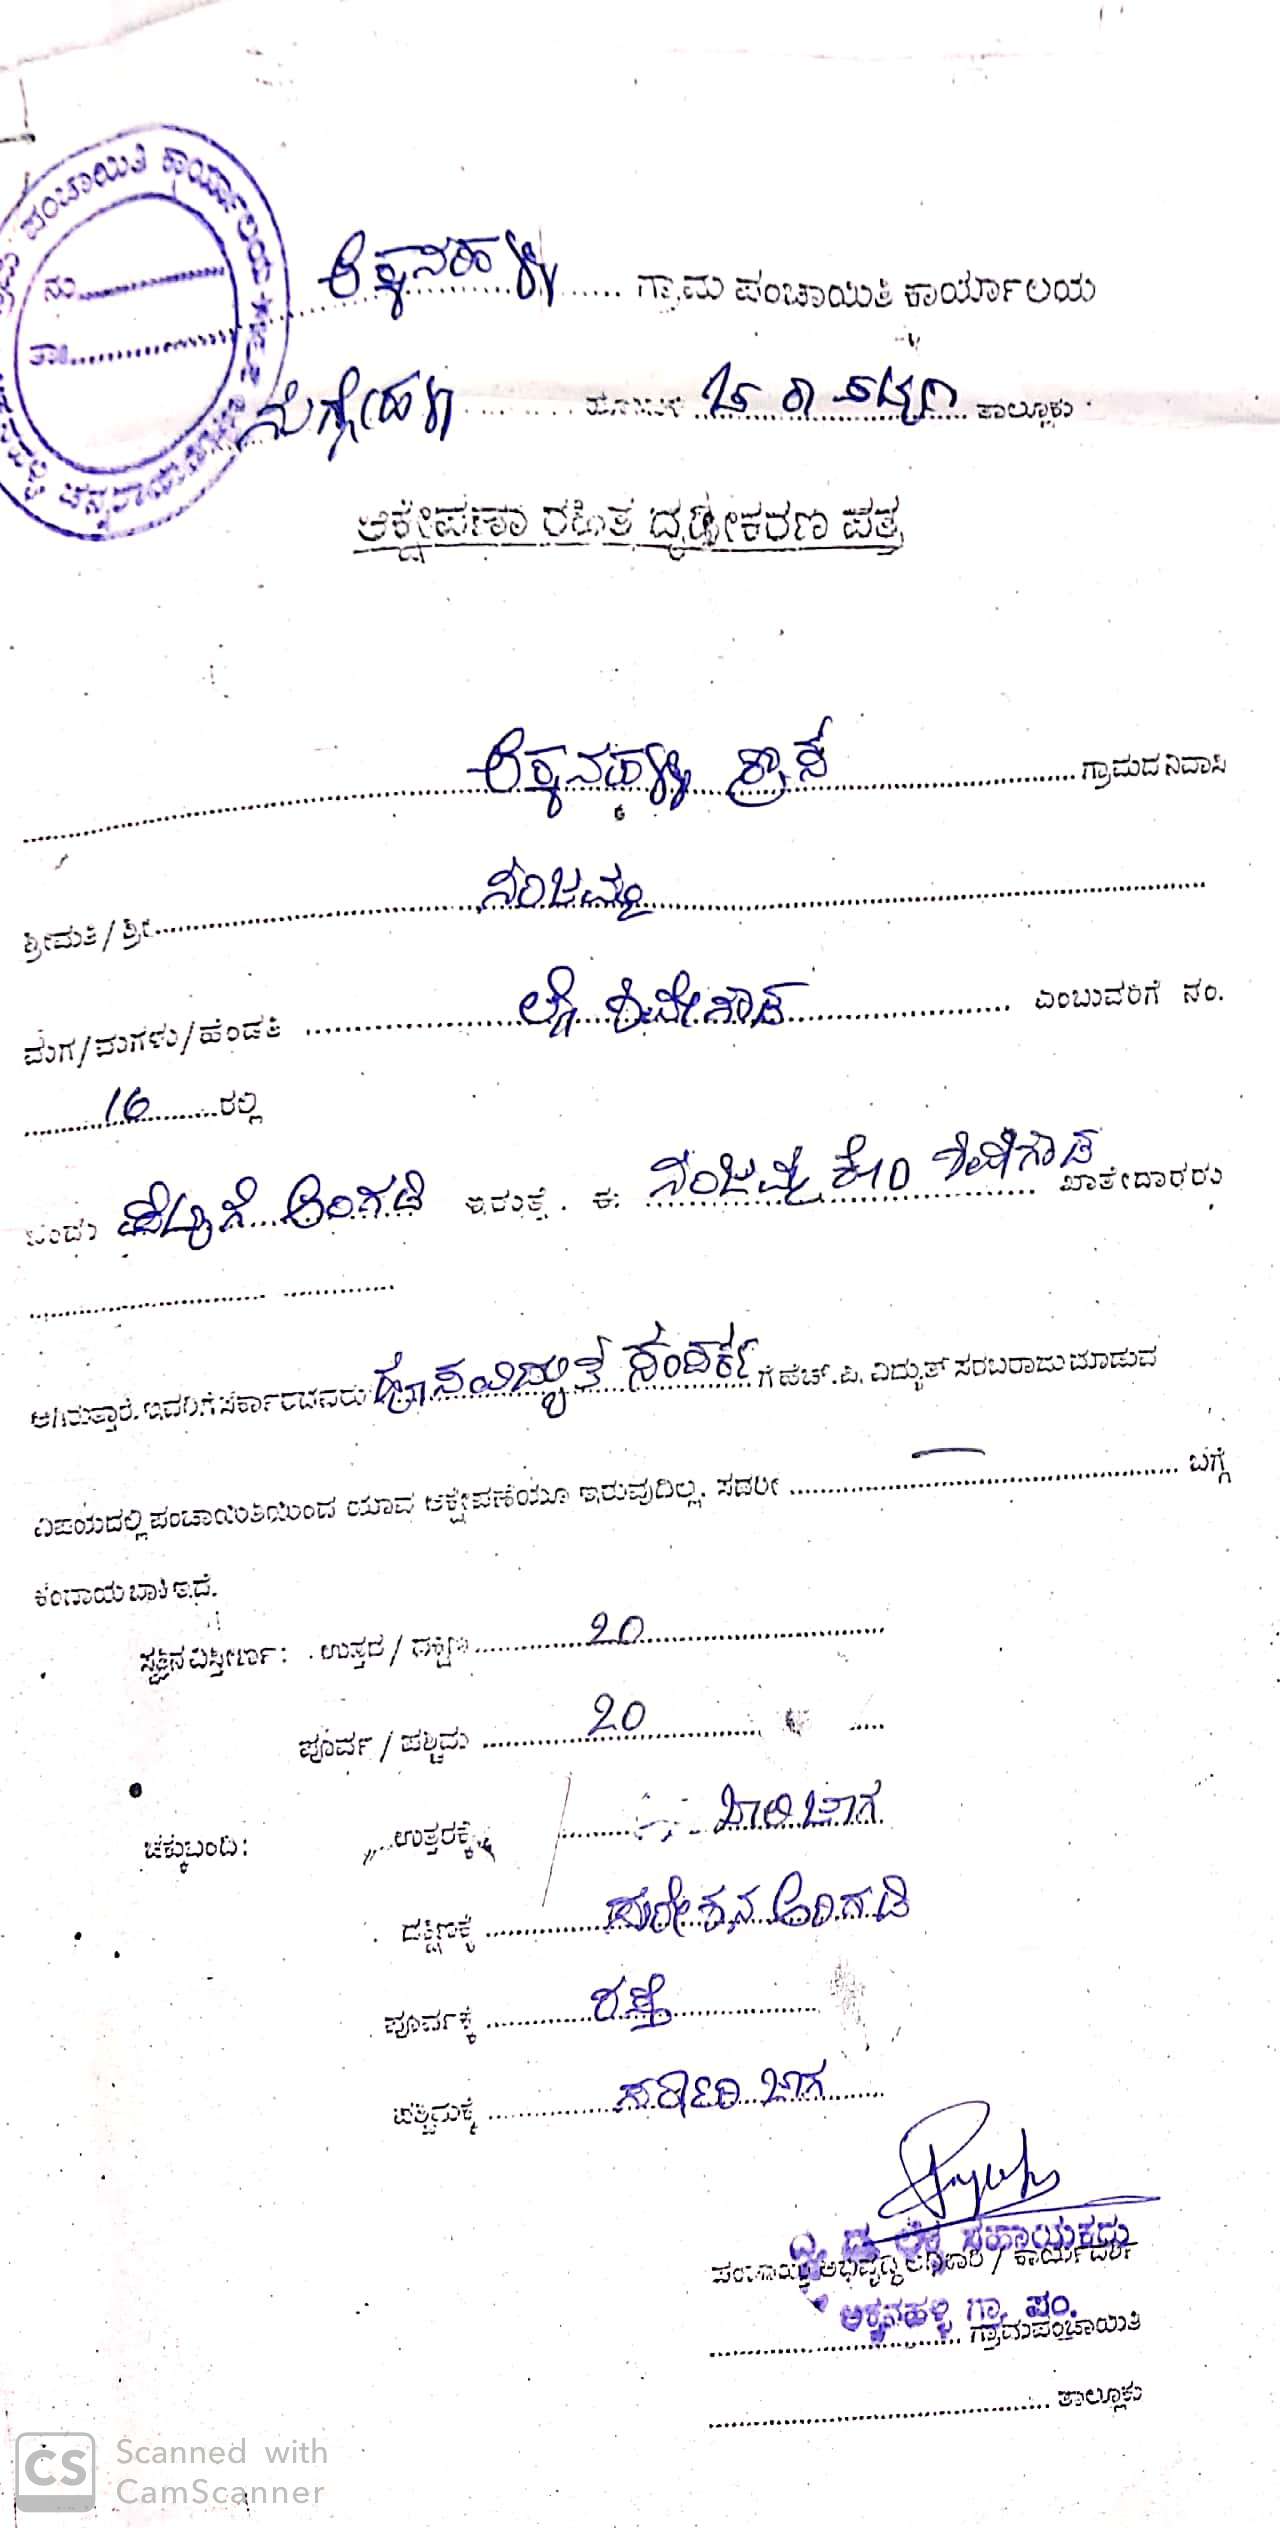 ಪಂಚಾಯಿತಿ ಕಾರ್ಯಾಲಯ
ನಂ
ತಾ||
ಅಕ್ಕನಹಳ್ಳಿ ಗ್ರಾಮ ಪಂಚಾಯಿತಿ ಕಾರ್ಯಾಲಯ
ನುಗ್ಗೇಹಳ್ಳಿ ಹೋಬಳಿ ತಾಲ್ಲೂಕು
ಆಕ್ಷೇಪಣಾ ರಹಿತ ದೃಢೀಕರಣ ಪತ್ರ
ಅಕ್ಕನಹಳ್ಳಿ ಕ್ರಾಸ್ ಗ್ರಾಮದ ನಿವಾಸಿ
ಶ್ರೀಮತಿ/ಶ್ರೀ ನಂಜಮ್ಮ
ಮಗ/ಮಗಳು/ಹೆಂಡತಿ ಲೇ|| ಶಿವೇಗೌಡ ಎಂಬುವರಿಗೆ ನಂ.
16 ರಲ್ಲಿ
ಒಂದು ಪೆಟ್ಟಿಗೆ ಅಂಗಡಿ ಇರುತ್ತೆ. ಈ ನಂಜಮ್ಮ ಕೋಂ ಶಿವೇಗೌಡ ಖಾತೇದಾರರು
ಆಗಿರುತ್ತಾರೆ. ಇವರಿಗೆ ಸರ್ಕಾರದವರು ವಿದ್ಯುತ್ ಸಂಪರ್ಕ ಗೆ ಹೆಚ್.ಪಿ. ವಿದ್ಯುತ್ ಸರಬರಾಜು ಮಾಡುವ
ವಿಷಯದಲ್ಲಿ ಪಂಚಾಯಿತಿಯಿಂದ ಯಾವ ಆಕ್ಷೇಪಣೆಯೂ ಇರುವುದಿಲ್ಲ. ಸದರೀ — ಬಗ್ಗೆ
ಕಂದಾಯ ಬಾಕಿ ಇದೆ.
ಸ್ವತ್ತಿನ ವಿಸ್ತೀರ್ಣ: ಉತ್ತರ / ದಕ್ಷಿಣ 20
ಪೂರ್ವ / ಪಶ್ಚಿಮ 20
ಚಕ್ಕುಬಂದಿ: ಉತ್ತರಕ್ಕೆ ಖಾಲಿ ಜಾಗ
ದಕ್ಷಿಣಕ್ಕೆ ಸುರೇಶನ ಅಂಗಡಿ
ಪೂರ್ವಕ್ಕೆ ರಸ್ತೆ
ಪಶ್ಚಿಮಕ್ಕೆ ಸರ್ಕಾರಿ ಜಾಗ
ದ್ವಿ ದ ಲೆಕ್ಕ ಸಹಾಯಕರು
ಪಂಚಾಯಿತಿ ಅಭಿವೃದ್ಧಿ ಅಧಿಕಾರಿ / ಕಾರ್ಯದರ್ಶಿ
ಅಕ್ಕನಹಳ್ಳಿ ಗ್ರಾ. ಪಂ.
ಗ್ರಾಮಪಂಚಾಯಿತಿ
ತಾಲ್ಲೂಕು
CS Scanned with
CamScanner